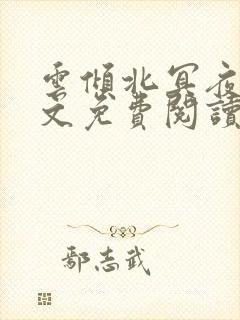 雲傾北冥夜
文免費閱讀
鄢志武